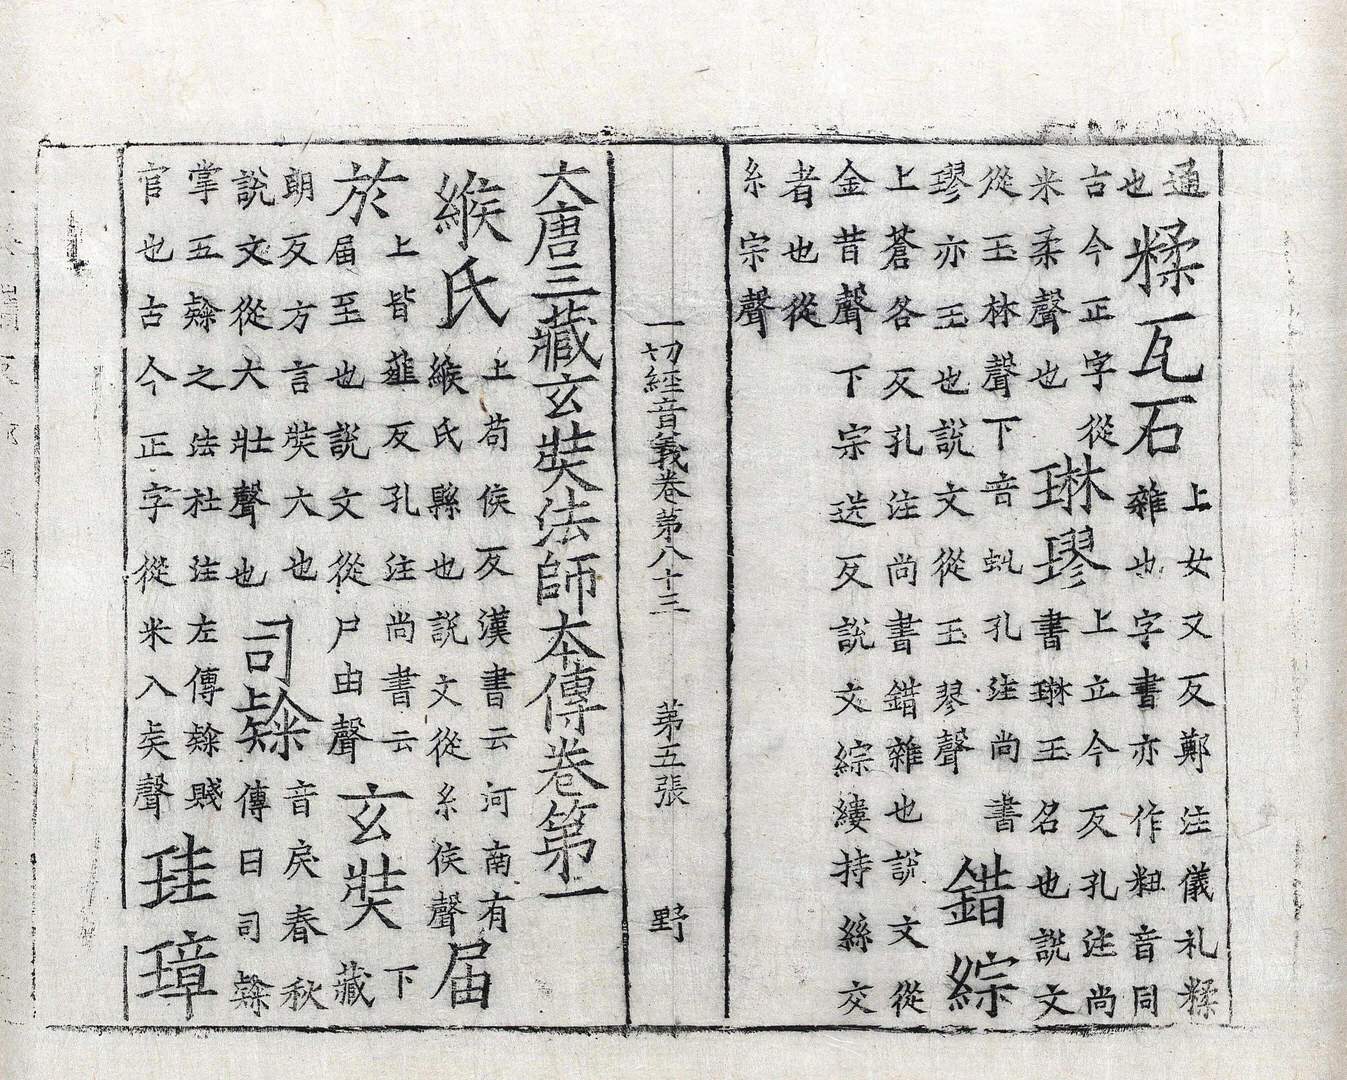 通也糅瓦石上女又反鄭注儀礼糅雜也字書亦作粈音同
古今正字從米柔聲也琳璆上立今反孔注尚書琳玉名也說文
從玉林聲下音虬孔注尚書璆亦玉也說文從玉翏聲錯綜
上蒼各反孔注尚書錯雜也說文從金昔聲下宗送反說文綜縷持絲交
者也從糸宗聲
一切經音義卷第八十三 第五張 野
大唐三藏玄奘法師本傳卷第一
緱氏上苟侯反漢書云河南有緱氏縣也說文從糸侯聲届
於上皆薤反孔注尚書云届至也說文從尸由聲玄奘下藏
朗反方言奘大也說文從犬壯聲也司音戾春秋傳曰司
掌五之法杜注左傳賤官也古今正字從米入矣聲珪璋